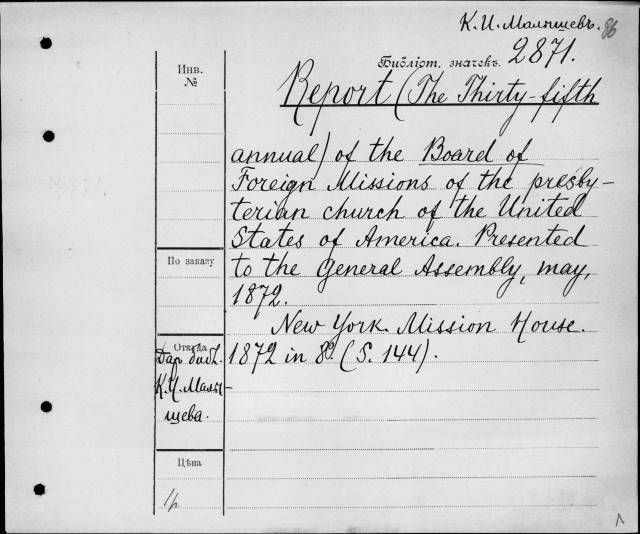 К. И. Малышевъ. 86
Библіот. значекъ. 2871.
Инв.
№
Report (The Thirty-fifth
annual) of the Board of
Foreign Missions of the presby-
terian church of the United
States of America. Presented
По заказу
to the General Assembly, may,
1872.
New York. Mission House.
1872 in 8º. (S. 144).
Откуда
Дар библ.
К. И. Малы-
шева.
Цѣна
1р